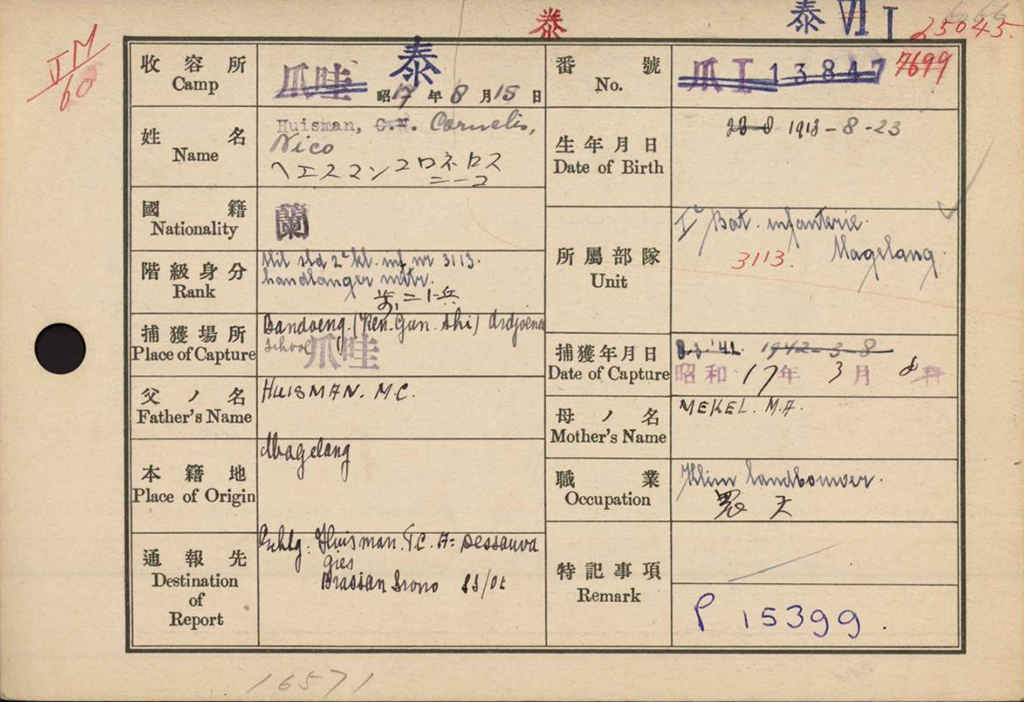 泰 泰 VI I
25045.
IM
60
7699
收容所
Camp
爪哇 泰
昭17年8月15日
番號
No.
爪 I 13847
姓名
Name
Huisman, C.N. Cornelis,
Nico
ヘエスマンコロネロス
ニーコ
生年月日
Date of Birth
1913-8-23
國籍
Nationality
蘭
階級身分
Rank
Mil sld 2e kl. inf nr 3113.
handlanger mitr.
所屬部隊
Unit
Ie Bat. infanterie.
Magelang.
3113.
捕獲場所
Place of Capture
Bandoeng. (Ken. Gun. Shi) Ardjoena
School 爪哇
捕獲年月日
Date of Capture
8.3.'42. 1942-3-8
昭和17年3月8日
父ノ名
Father's Name
HUISMAN. M.C.
母ノ名
Mother's Name
MEKEL. M.A.
本籍地
Place of Origin
Magelang
職業
Occupation
Klein landbouwer.
農夫
通報先
Destination
of
Report
Huisman. F.C. A= Dessauva
gies
11/01
特記事項
Remark
P 15399.
16571